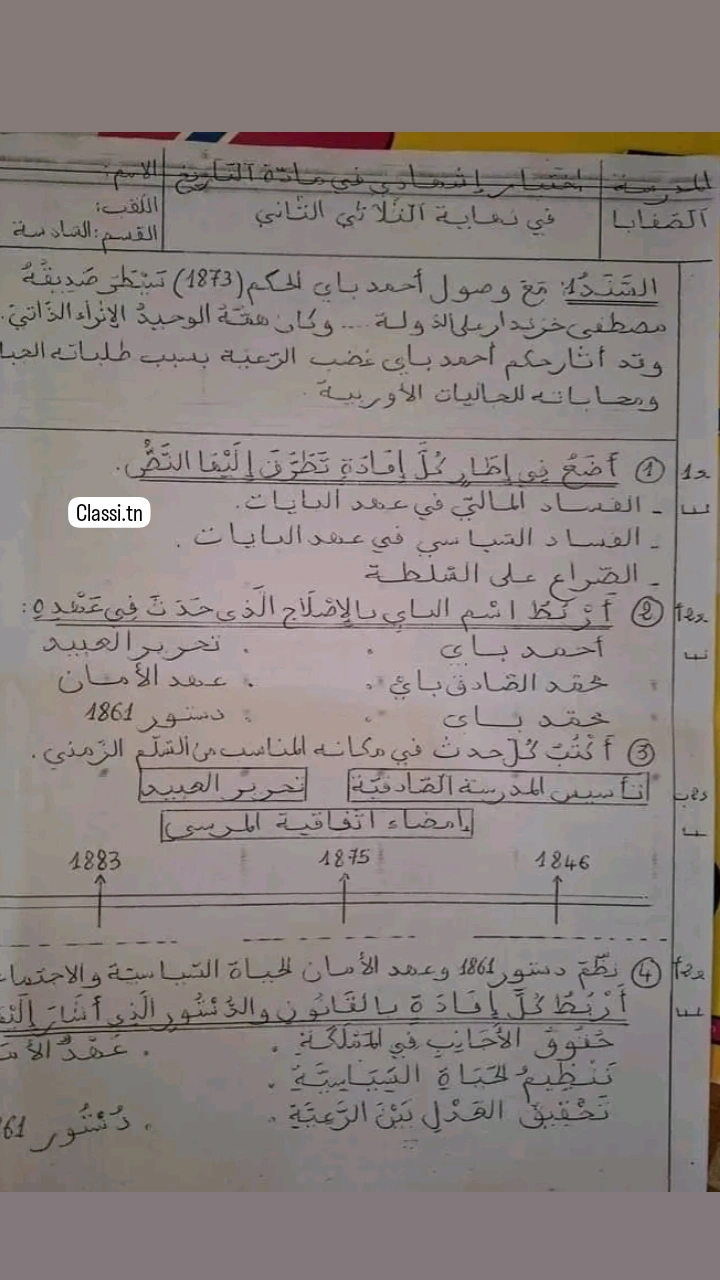 المدرسة
الصفايا
اختبار إشهادي في مادة التاريخ
في نهاية الثلاثي الثاني
الاسم:
اللقب:
القسم: السادسة
السّند1: مع وصول أحمد باي للحكم (1873) سيطر صديقه
مصطفى خزندار على الدولة .... وكان همّه الوحيد الإثراء الذّاتيّ.
وقد أثار حكم أحمد باي غضب الرّعيّة بسبب طلباته
ومحاباته للجاليات الأوربية.
① أَضَعُ فِي إِطَارٍ كُلَّ إِفَادَةٍ تَطَرَّقَ إِلَيْهَا النَّصُّ.
- الفساد الماليّ في عهد البايات.
- الفساد السّياسي في عهد البايات.
- الصّراع على السّلطة
② أَرْبُطُ اسْم الباي بالإصْلَاح الّذي حَدَثَ فِي عَهْدِهِ:
أحمد باي . . تحرير العبيد
محمّد الصّادق باي . . عهد الأمان
محمّد باي . . دستور 1861
③ أَكْتُبُ كُلّ حدث في مكانه المناسب من السّلّم الزّمني.
تأسيس المدرسة الصّادقيّة تحرير العبيد
إمضاء اتّفاقية المرسى
1846 1875 1883
④ نظّم دستور 1861 وعهد الأمان الحياة السّياسيّة
أَرْبُطُ كُلَّ إِفَادَةٍ بالقَانُونِ والدُّسْتُورِ الّذِي أَشَارَ
حُقُوقُ الأَجَانِبِ فِي المَمْلَكَةِ . . عَهْدُ
تَنْظِيمُ الحَيَاةِ السِّيَاسِيَّةِ .
تَحْقِيقُ العَدْلِ بَيْنَ الرَّعِيَّةِ . . دُسْتُور
Classi.tn